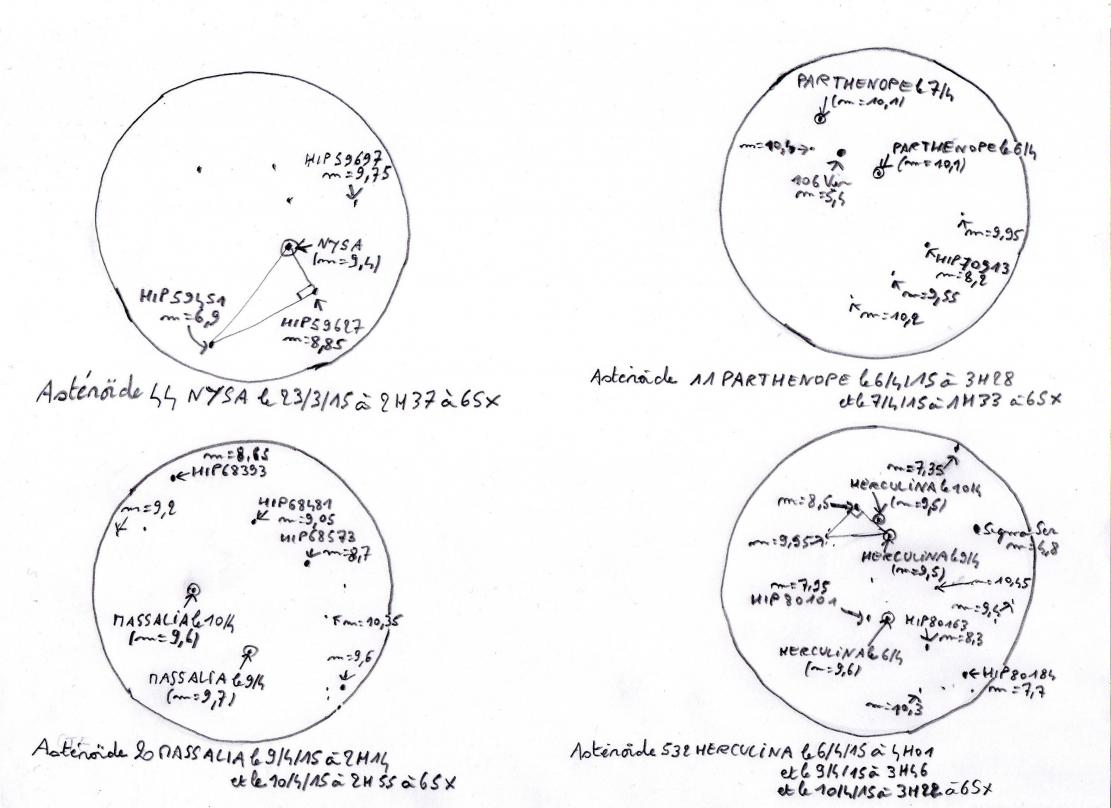 HIP59697
m=9,75
NYSA
(m=9,4)
HIP59451
m=6,9
HIP59627
m=8,85
Astéroïde 44 NYSA le 23/3/15 à 2H37 à 65X
PARTHENOPE le 7/4
(m=10,1)
m=10,4
PARTHENOPE le 6/4
(m=10,1)
106 Vir
m=5,4
m=9,95
HIP70913
m=8,2
m=9,55
m=10,2
Astéroïde 11 PARTHENOPE le 6/4/15 à 3H28
et le 7/4/15 à 1H33 à 65X
m=8,65
HIP68393
m=9,2
HIP68481
m=9,05
HIP68573
m=8,7
MASSALIA le 10/4
(m=9,6)
m=10,35
m=9,6
MASSALIA le 9/4
(m=9,7)
Astéroïde 20 MASSALIA le 9/4/15 à 2H14
et le 10/4/15 à 2H55 à 65X
m=7,35
HERCULINA le 10/4
(m=9,5)
m=8,5
Sigma Ser
m=4,8
m=9,95
HERCULINA le 9/4
(m=9,5)
m=10,45
m=7,95
HIP80101
m=9,4
HIP80163
m=8,3
HERCULINA le 6/4
(m=9,6)
HIP80184
m=7,7
m=10,3
Astéroïde 532 HERCULINA le 6/4/15 à 4H01
et le 9/4/15 à 3H46
et le 10/4/15 à 3H22 à 65X